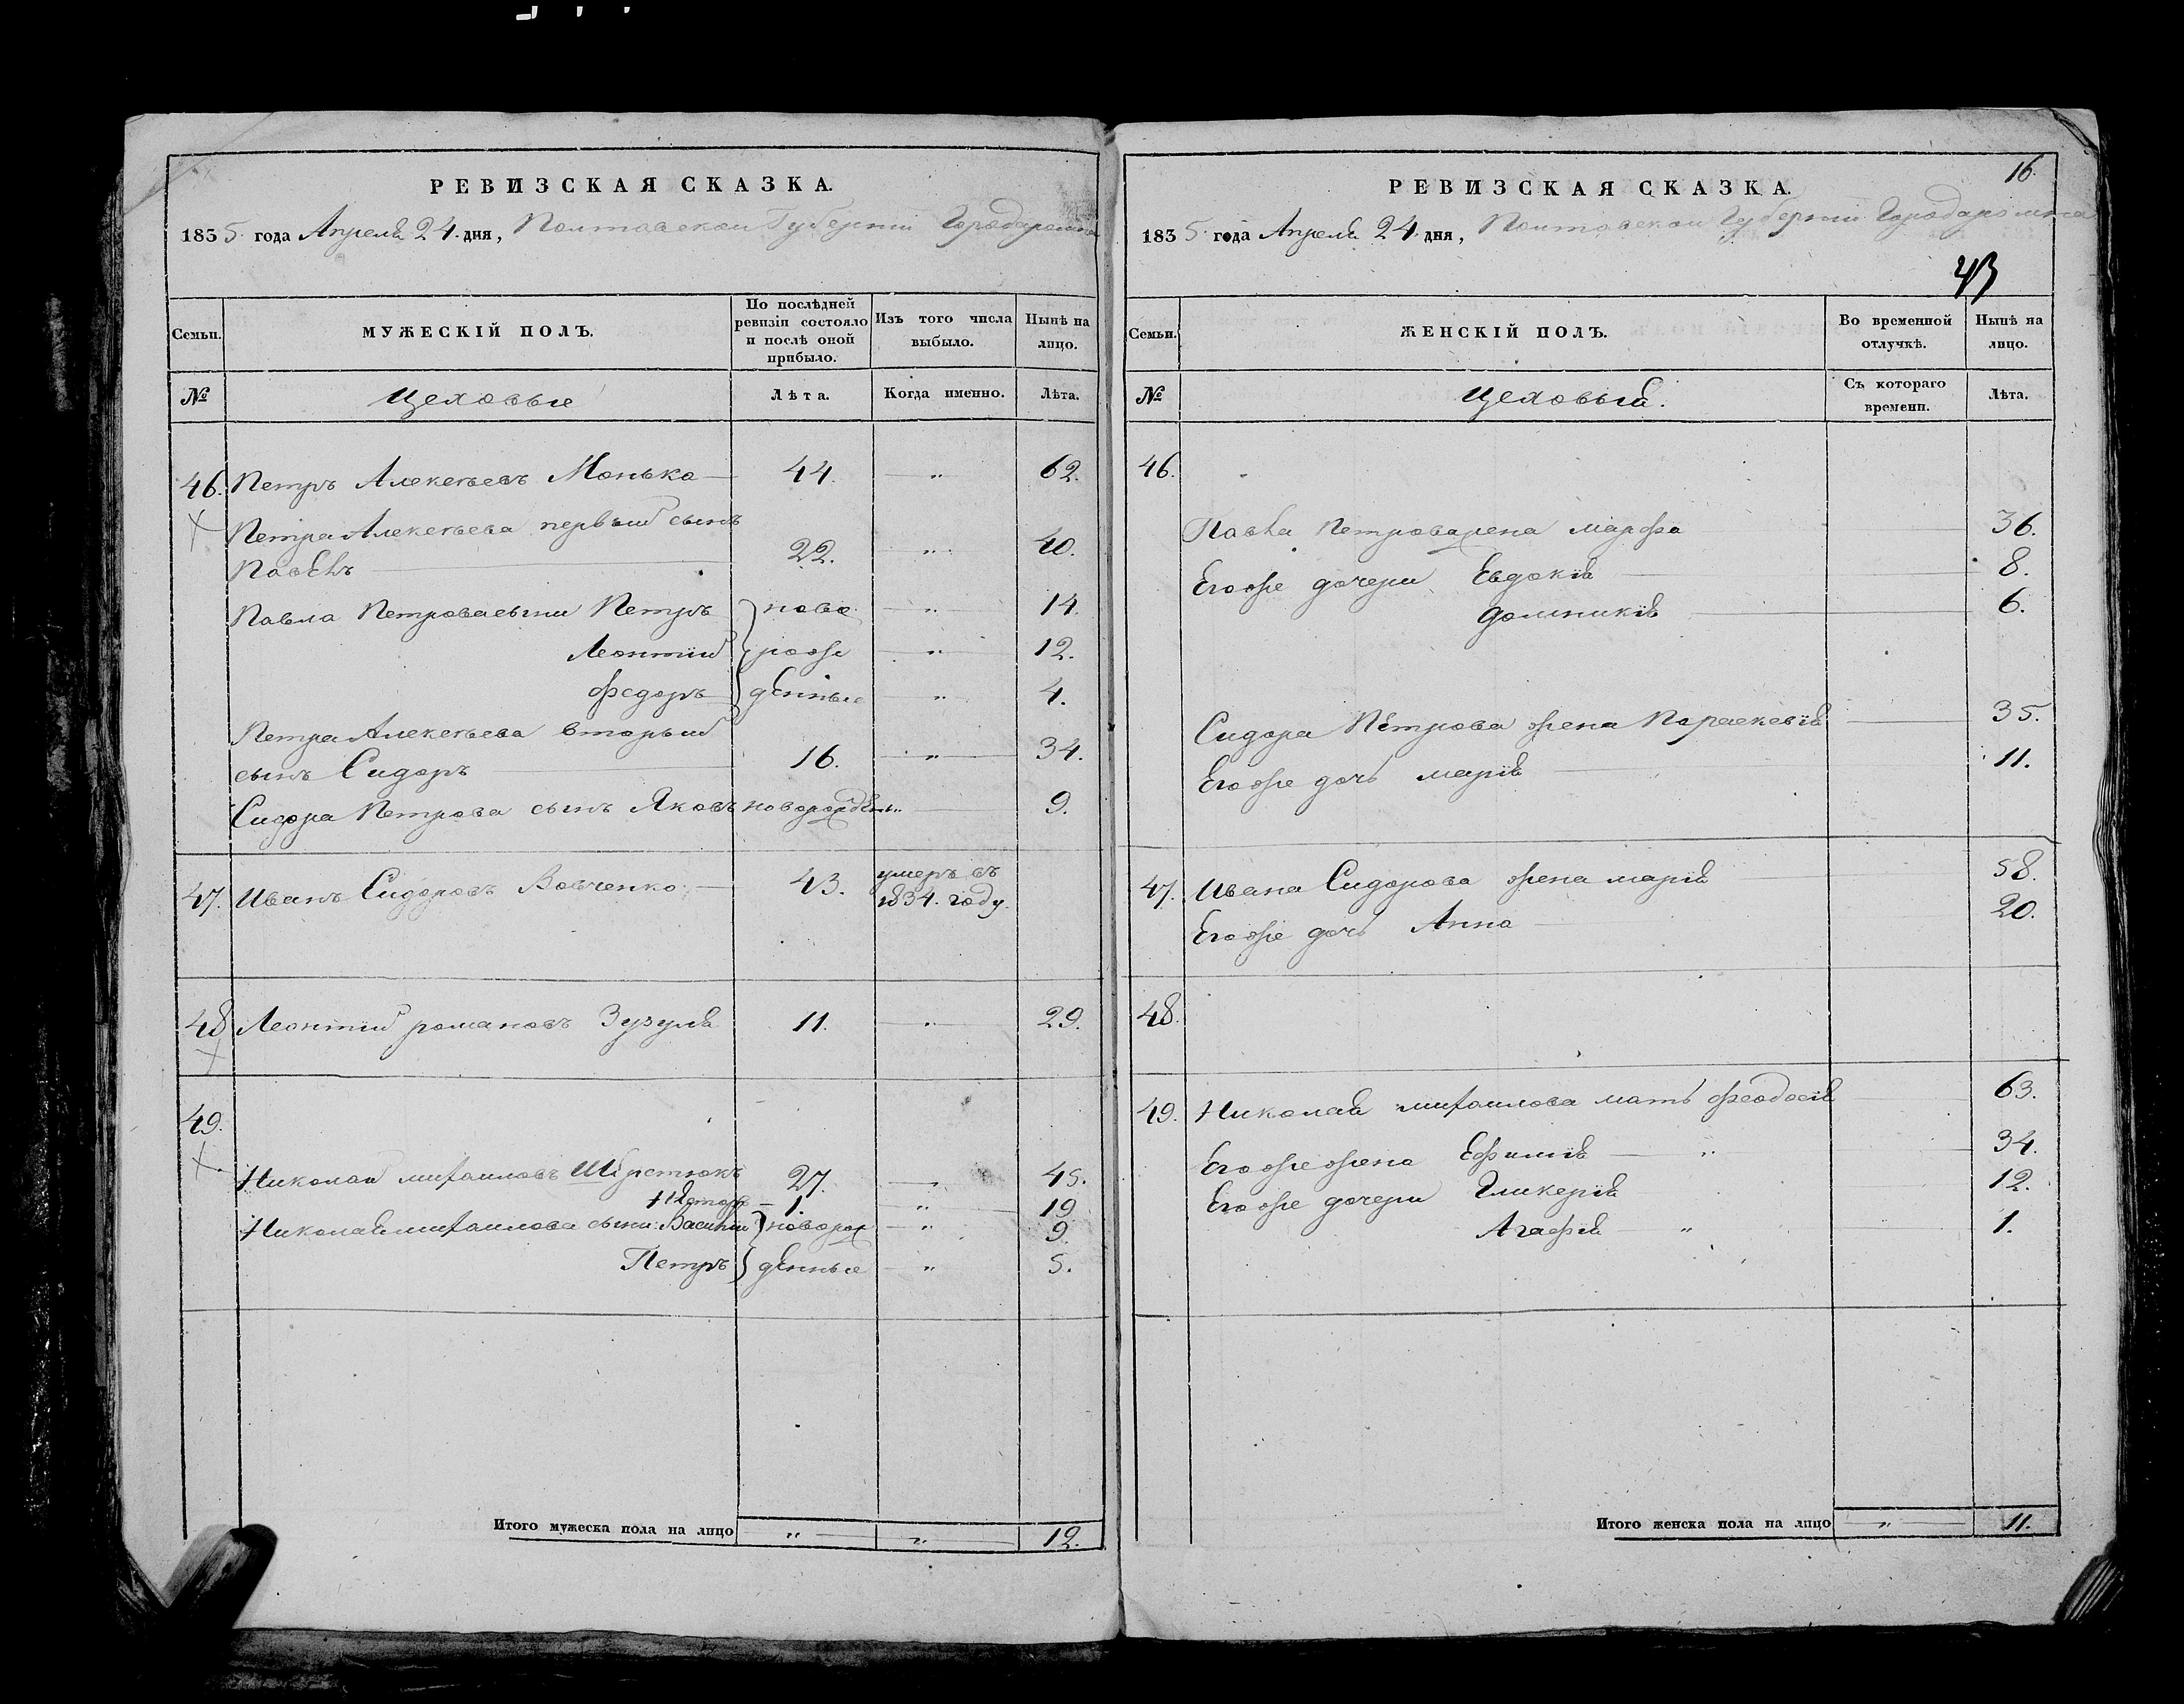 РЕВИЗСКАЯ СКАЗКА.
1835. года Апреля 24. дня, Полтавской Губернии Города
Семьи.
МУЖЕСКІЙ ПОЛЪ.
По послѣдней
ревизіи состояло
и послѣ оной
прибыло.
Изъ того числа
выбыло.
Нынѣ на
лицо.
№
Цеховые
Лѣта.
Когда именно.
Лѣта.
46. Петръ Алексѣевъ Монька 44. „ 62.
Петра Алексѣева первый сынъ
Павелъ 22. „ 40.
Павла Петрова сыни Петръ ново „ 14.
Леонтий рож „ 12.
Федоръ денные „ 4.
Петра Алексѣева вторый
сынъ Сидоръ 16. „ 34.
Сидора Петрова сынъ Яковъ новорожденъ „ 9.
47. Иванъ Сидоровъ Вовченко 43. умеръ въ
1834. году.
48 Леонтий романовъ Зузуля 11. „ 29.
49.
Николай михаиловъ 27. 45.
1. „ 19
Николая михаилова сыни: Василий новорож „ 9.
Петръ денные „ 5.
Итого мужеска пола на лицо „ „ 12.
16.
РЕВИЗСКАЯ СКАЗКА.
1835. года Апреля 24. дня, Полтавской Губернии Города
43
Семьи.
ЖЕНСКІЙ ПОЛЪ.
Во временной
отлучкѣ.
Нынѣ на
лицо.
№
Цеховыя.
Съ котораго
времени.
Лѣта.
46.
Павла Петрова жена марфа 36.
Егоже дочери Евдокія 8.
домникія 6.
Сидора Петрова жена Параскевія 35.
Егоже дочь марія 11.
47. Ивана Сидорова жена марія 58.
Егоже дочь Анна 20.
48.
49. Николая михаилова мать феодосія 63.
Егоже жена Ефимія „ 34.
Егоже дочери Гликерія 12.
Агафія „ 1.
Итого женска пола на лицо „ 11.